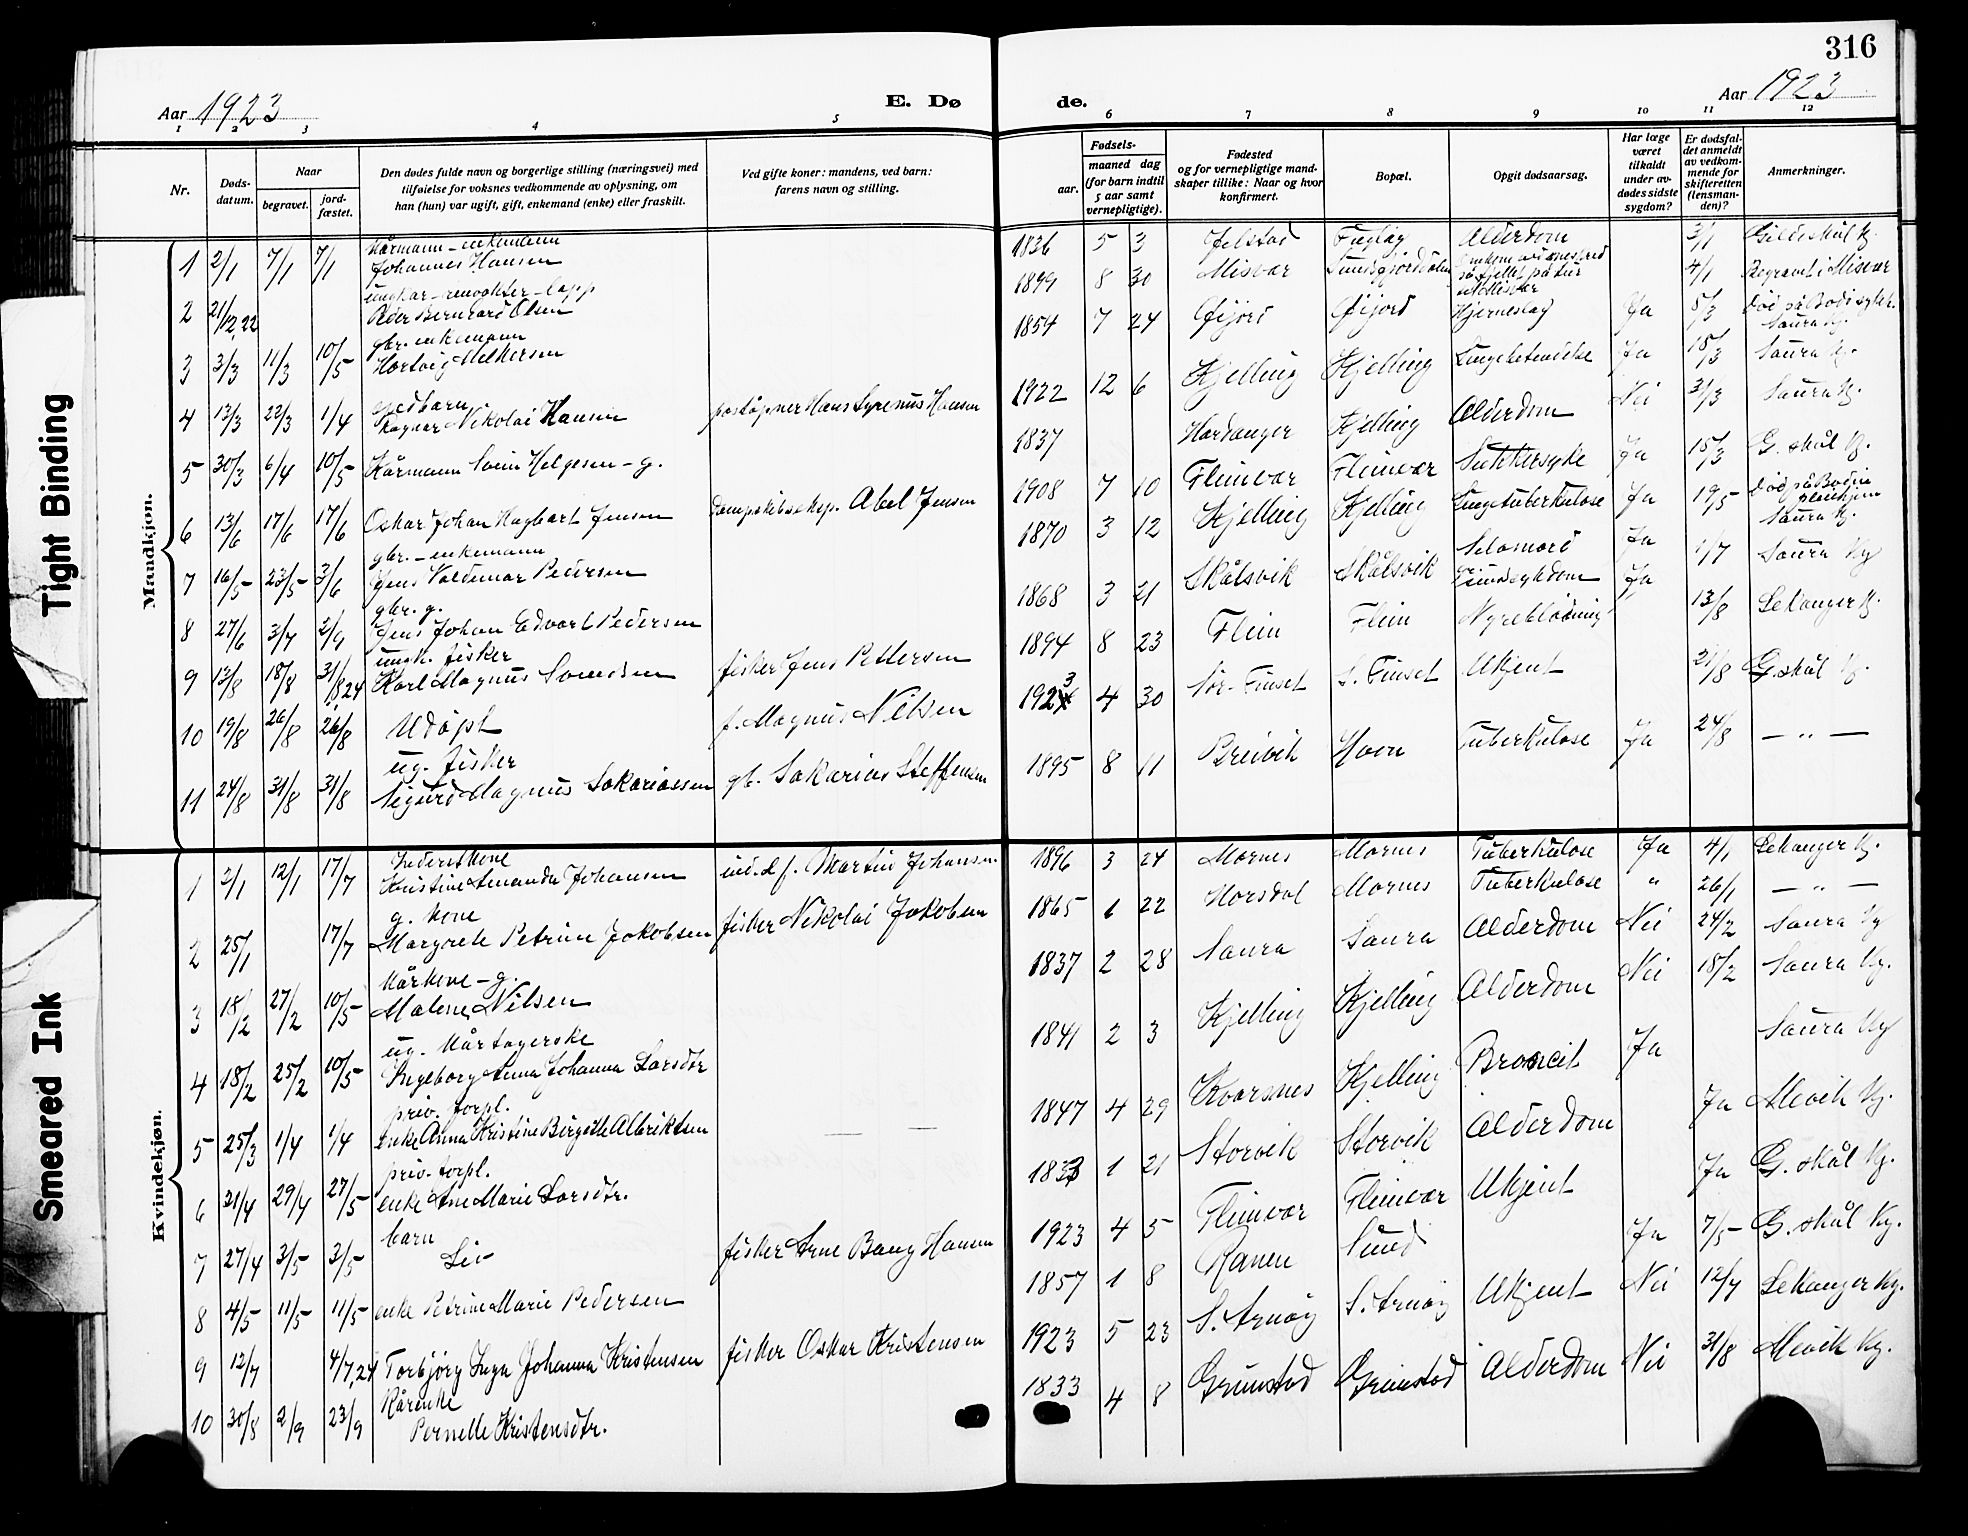 316
Aar 1923
E. Dø
de.
Aar 1923
1 2 3 4 5 6 7 8 9 10 11 12
Nr.
Døds-
datum.
Naar
begravet.
jord-
fæstet.
Den dødes fulde navn og borgerlige stilling (næringsvei) med
tilføielse for voksnes vedkommende av oplysning, om
han (hun) var ugift, gift, enkemand (enke) eller fraskilt.
Ved gifte koner: mandens, ved barn:
farens navn og stilling.
Fødsels-
aar.
maaned dag
(for barn indtil
5 aar samt
vernepligtige).
Fødested
og for vernepligtige mand-
skaper tillike: Naar og hvor
konfirmert.
Bopæl.
Opgit dødsaarsag.
Har læge
været
tilkaldt
under av-
dødes sidste
sygdom?
Er dødsfal-
det anmeldt
av vedkom-
mende for
skifteretten
(lensman-
den)?
Anmerkninger.
Mandkjøn.
Kårmann - enkemann
1 2/1 7/1 7/1 Johannes Hansen 1836 5 3 Jelstad Fugløy Alderdom 3/1 Gildeskål Kg.
ungkar - renvokter - lapp
2 21/12 22 Peder Bernhard Olsen 1899 8 30 Misvær 4/1 Begravet i Misvær
gbr. enkemann
3 3/3 11/3 10/5 Hartvig Melkersen 1854 7 24 Øijord Øijord Hjerneslag Ja 5/3 Død på Bodø sykh.
Saura Kg.
spedbarn
4 13/3 22/3 1/4 Ragnar Nikolai Hansen poståpner Hans Syrenus Hansen 1922 12 6 Kjelling Kjelling Ja 15/3 Saura Kg.
5 30/3 6/4 10/5 Kårmann Svein Helgesen - g. 1837 Hardanger Kjelling Alderdom Nei 31/3 Saura Kg.
6 13/6 17/6 17/6 Oskar Johan Hagbart Jensen Dampskibseksp. Abel Jensen 1908 7 10 Fleinvær Fleinvær Sukkersyke Ja 15/3 G. skål Kg.
gbr. - enkemann
7 16/5 23/5 3/6 Jens Valdemar Pedersen 1870 3 12 Kjelling Kjelling Lungetuberkulose Ja 19/5 Død på Bodin
pleiehjem
Saura Kg.
gbr. g.
8 27/6 3/7 2/9 Jens Johan Edvart Pedersen 1868 3 21 Skålsvik Skålsvik Selvmord Ja 1/7 Saura Kg
sinnsygdom Ja
ungk. fisker
9 13/8 18/8 31/8 24 Karl Magnus Svendsen fisker Jens Pettersen 1894 8 23 Flein Flein Nyreblødning 13/8 Lekanger Kg.
10 19/8 26/8 26/8 Udøpt f. Magnus Nilsen 1923 4 30 Sør-Finset S. Finset Ukjent 21/8 G. skål Kg.
ug. fisker
11 24/8 31/8 31/8 Sigurd Magnus Sakariassen gb. Sakarias Steffensen 1895 8 11 Breivik Hovn Tuberkulose Ja 24/8 — „ —
Kvindekjøn.
Inderstkone
1 3/1 12/1 17/7 Kristine Amanda Johansen ind. & f. Martin Johansen 1896 3 24 Mornes Mornes Tuberkulose Ja 4/1 Lekanger Kg.
g. kone
2 25/1 17/7 Margrete Petrine Jakobsen fisker Nikolai Jakobsen 1865 1 22 Horsdal Mornes Tuberkulose " 26/1 — „ —
Kårkone - g.
3 18/2 27/2 10/5 Malene Nilsen 1837 2 28 Saura Saura Alderdom Nei 24/2 Saura Kg
ug. Kårtagerske
4 18/2 25/2 10/5 Ingeborg Anna Johanna Larsdtr 1841 2 3 Kjelling Kjelling Alderdom Nei 18/2 Saura Kg.
priv. forpl.
5 25/3 1/4 1/4 enke Anna Kristine Birgitte Albriktsen — — 1847 4 29 Kvarsnes Kjelling Broncit Ja Saura Kg
priv. forpl.
6 21/4 29/4 27/5 enke Ane Marie Larsdtr. 1833 1 21 Storvik Storvik Alderdom Ja Mevik Kg.
barn
7 27/4 3/5 3/5 Liv fisker Arne Bang Hansen 1923 4 5 Fleinvær Fleinvær Ukjent Ja G. skål Kg.
8 4/5 11/5 11/5 enke Petrine Marie Pedersen 1857 1 8 Ranen Sund Ja 7/5 G. skål Kg.
9 12/7 4/7, 24 Torbjørg Inga Johanna Kristensen fisker Oskar Kristensen 1923 5 23 S. Arnøy S. Arnøy Ukjent Nei 12/7 Lekanger Kg.
Kårenke
10 30/8 2/9 23/9 Pernelle Kristensdtr. 1833 4 8 Grimstad Grimstad Alderdom Nei 31/8 Mevik Kg.
Tight Binding
Smeared Ink